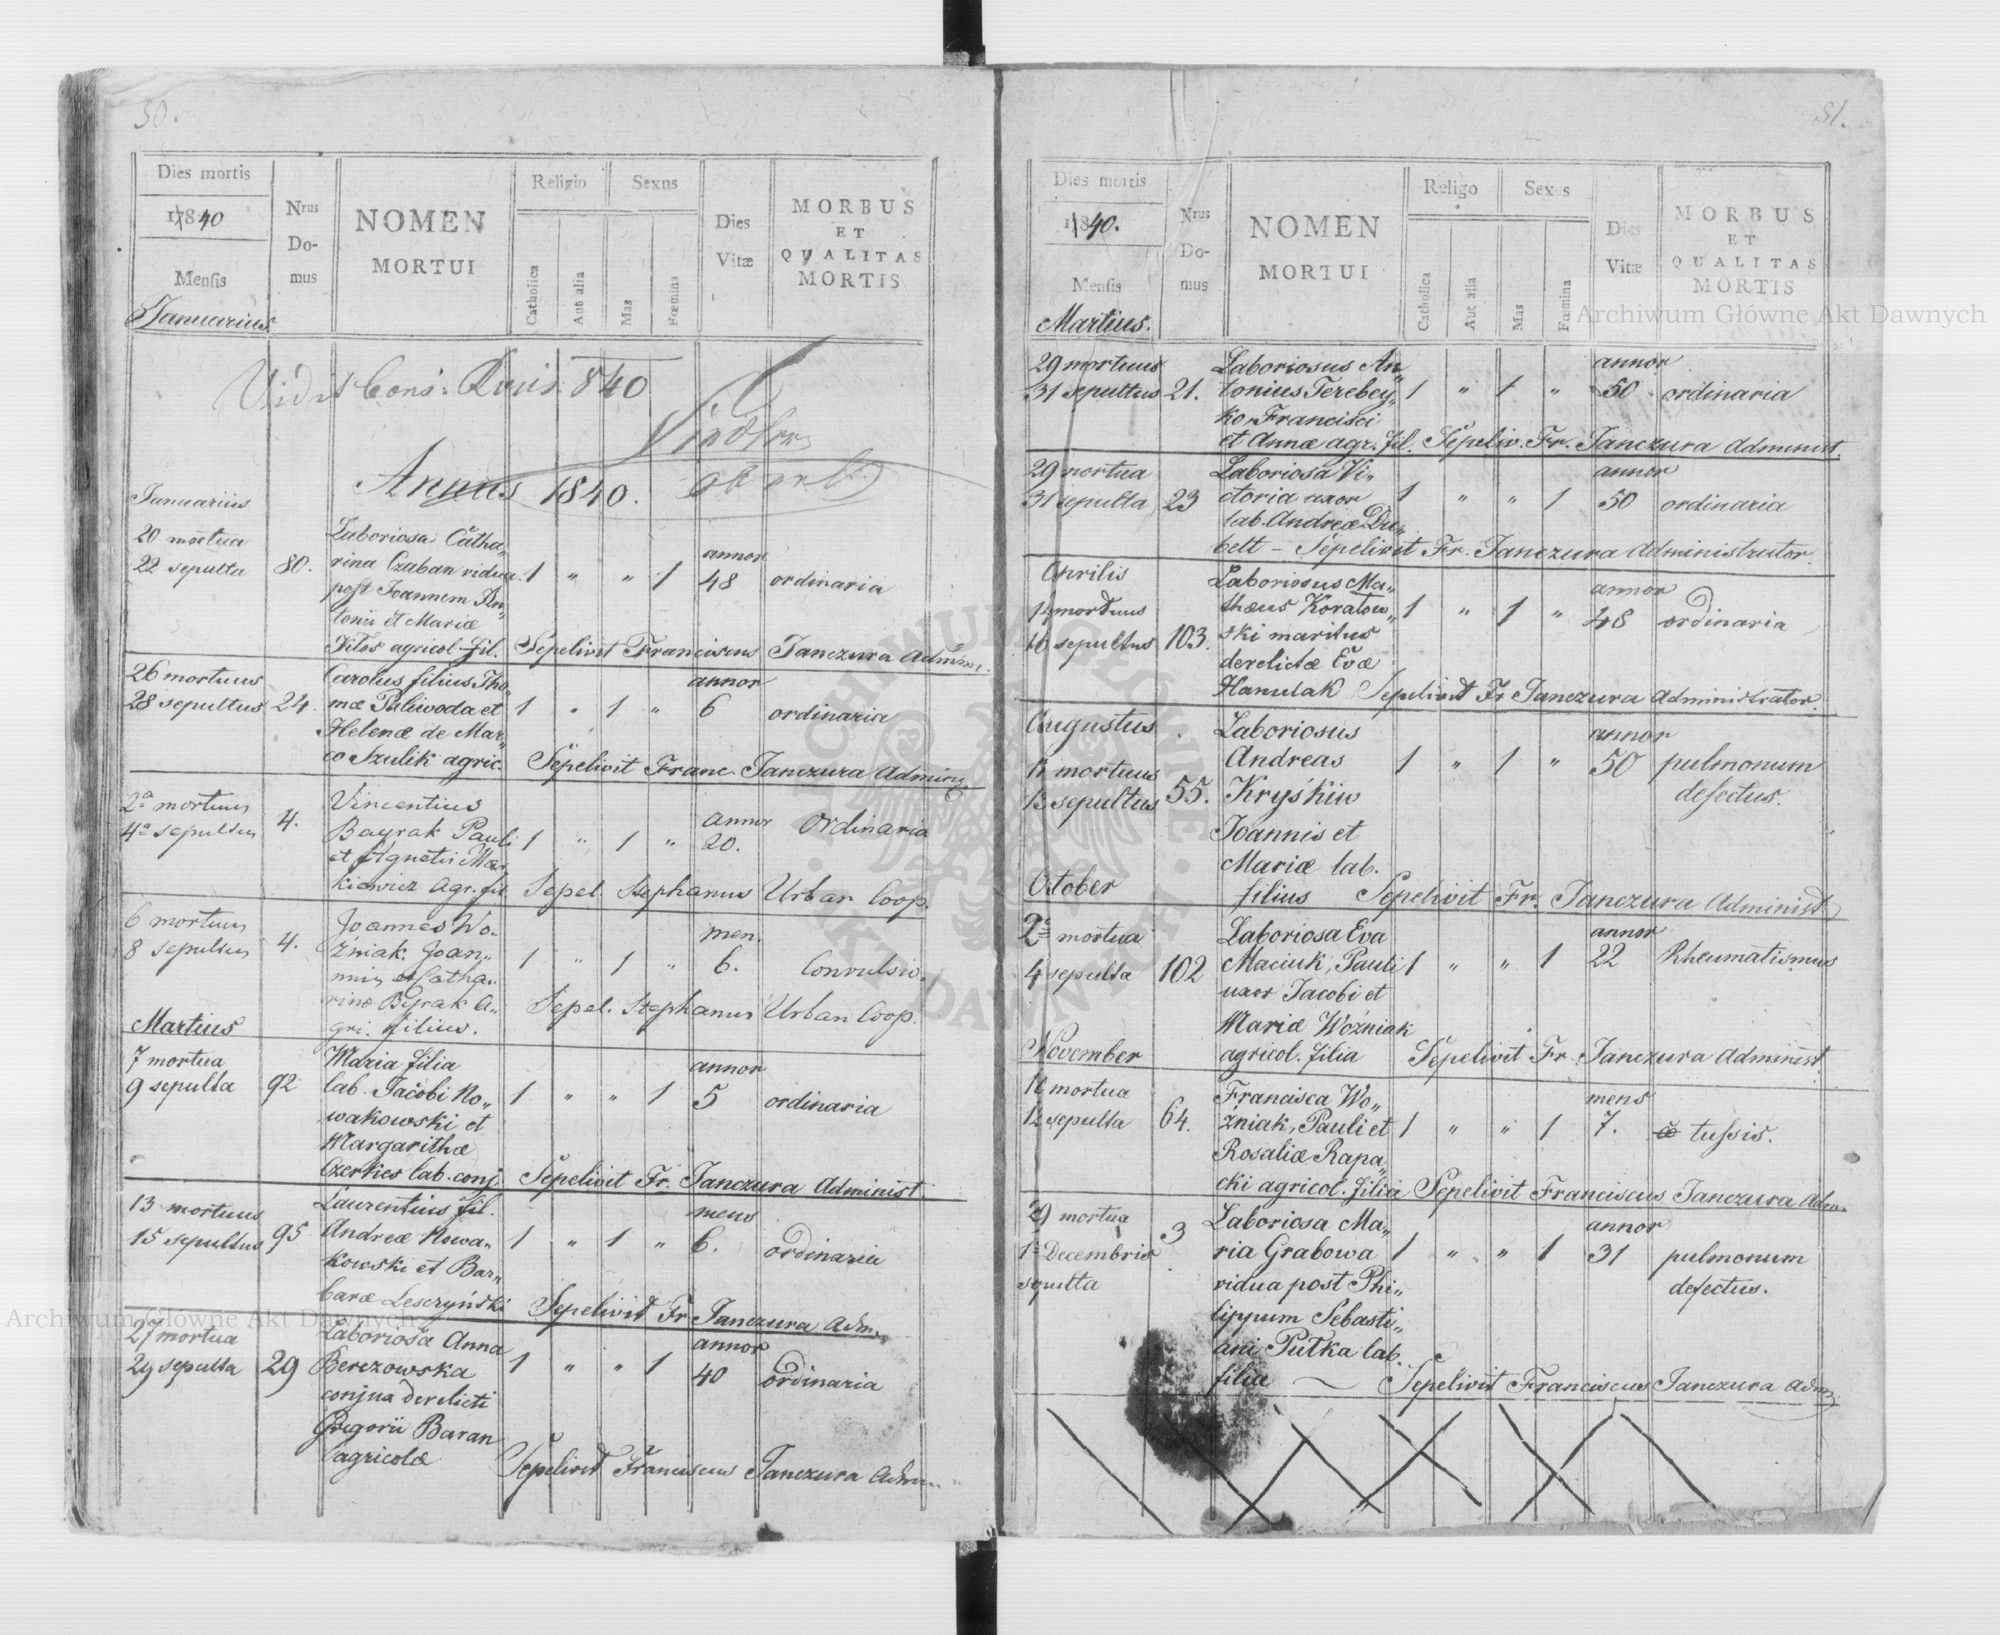 30.
Dies mortis
1840
Mensis
Januarius
Nrus
Do-
mus
NOMEN
MORTUI
Religio
Catholica
Aut alia
Sexus
Mas
Fœmina
Dies
Vitæ
MORBUS
ET
QUALITAS
MORTIS
Annus 1840.
Januarius
20 mortua
22 sepulta
80.
Laboriosa Catha„
rina Czaban vidua
post Joannem An„
tonii et Mariæ
agricol. fil.
1 „ „ 1
annor
48
ordinaria
Sepelivit Franciscus Janczura
26 mortuus
28 sepultus
24.
Carolus filius Tho„
mæ Paliwoda et
Helenæ de Mar„
co Szulik agric.
1 „ 1 „
annor
6
ordinaria
Sepelivit Franc. Janczura
2ª mortuus
4ª sepultus
4.
Vincentius
Bayrak Pauli
et
Agr. fil.
1 „ 1 „
annor
20.
Ordinaria
Sepel. Stephanus Urban Coop.
6 mortuus
8 sepultus
4.
Joannes Wo„
źniak Joan„
nis et Catha„
rinæ Bayrak A„
gri. filius.
1 „ 1 „
men.
6.
Convulsio.
Sepel. Stephanus Urban Coop.
Martius
7 mortua
9 sepulta
92
Maria filia
lab. Jacobi No„
wakowski et
Margarithæ
Czerkies lab. conj.
1 „ „ 1
annor
5
ordinaria
Sepelivit Fr. Janczura Administ
13 mortuus
15 sepultus
95
Laurentius fil.
Andreæ Nowa„
kowski et Bar„
baræ Lesczyński
1 „ 1 „
mens
6.
ordinaria
Sepelivit Fr. Janczura Adm.
27 mortua
29 sepulta
29
Laboriosa Anna
Berezowska
conjux derelicti
Gregorii Baran
agricolæ
1 „ „ 1
annor
40
ordinaria
Sepelivit Franciscus Janczura
31.
Dies mortis
1840.
Mensis
Martius.
Nrus
Do-
mus
NOMEN
MORTUI
Religo
Catholica
Aut alia
Sexus
Mas
Fœmina
Dies
Vitæ
MORBUS
ET
QUALITAS
MORTIS
29 mortuus
31 sepultus
21.
Laboriosus An„
tonius Terebey„
ko Francisci
et Annæ agr. fil.
1 „ 1 „
annor
50
ordinaria
Sepeliv. Fr. Janczura Administ.
29 mortua
31 sepulta
23
Laboriosa Vi„
ctoria uxor
lab. Andreæ Du„
belt –
1 „ „ 1
annor
50
ordinaria
Sepelivit Fr. Janczura Administrator.
Aprilis
14 mortuus
16 sepultus
103.
Laboriosus Ma„
thæus Koratow„
ski maritus
derelictæ Evæ
Hanulak
1 „ 1 „
annor
48
ordinaria
Sepelivit Fr Janczura Administrator.
Augustus
mortuus
sepultus
55.
Laboriosus
Andreas
Kryśkiw
Joannis et
Mariæ lab.
filius
1 „ 1 „
annor
50
pulmonum
defectus.
Sepelivit Fr. Janczura Administ
October
2ª mortua
4 sepulta
102
Laboriosa Eva
Maciuk, Pauli
uxor Jacobi et
Mariæ Woźniak
agricol. filia
1 „ „ 1
annor
22
Rheumatismus
Sepelivit Fr. Janczura Administ
November
10 mortua
12 sepulta
64.
Francisca Wo„
źniak, Pauli et
Rosaliæ Rapa„
cki agricol. filia
1 „ „ 1
mens
7.
tussis.
Sepelivit Franciscus Janczura Adm.
29 mortua
1ª Decembris
sepulta
3
Laboriosa Ma„
ria Grabowa
vidua post Phi„
lippum Sebasti„
ani Putka lab.
filia
1 „ „ 1
annor
31
pulmonum
defectus.
Sepelivit Franciscus Janczura Adm
Archiwum Główne Akt Dawnych
Archiwum Główne Akt Dawnych
ARCHIWUM GŁÓWNE AKT DAWNYCH